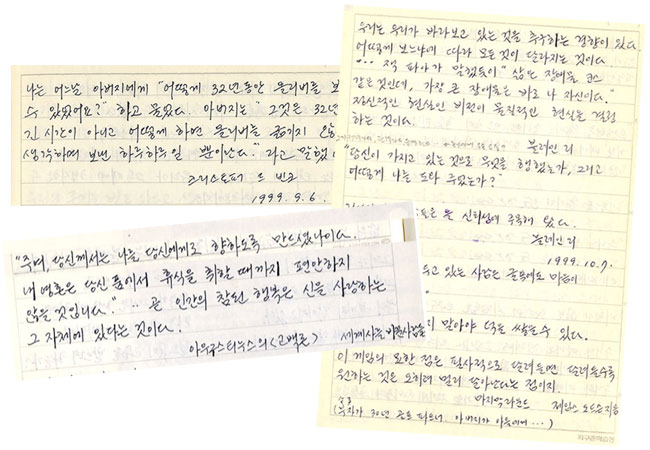 나는 어느날 아버지에게 "어떻게 32년동안 올리버를 보
수 있었어요?" 하고 물었다. 아버지는 "그것은 32년
긴 시간이 아니란 어떻게 하면 올리버를 굶기지 않
생각하며 보낸 하루하루일 뿐이란다." 라고 말했
크리스토퍼 드 빈크
1999. 9. 6.
"주여, 당신께서는 나를 당신에게로 향하도록 만드셨나이다.
내 영혼은 당신 품에서 휴식을 취할 때까지 편안하지
않을 것입니다." " 곧 인간의 참된 행복은 신을 사랑하는
그 자체에 있다는 것이다.
아우구스티누스의 <고백론> 세계사를
우리는 우리가 바라보고 있는 것을 추구하는 경향이 있다.
어떻게 보느냐에 따라 모든 것이 달라지는 것이다
잭 파아가 말했듯이 " 삶은 장애물 코스
같은 것인데, 가장 큰 장애물은 바로 나 자신이다."
정신적인 현실인 비전이 물질적인 현실을 결정
하는 것이다.
"당신이 가지고 있는 것으로 무엇을 행했는가, 그리고
어떻게 나를 도와 주었는가?"
1999. 10. 7.
고 있는 사람은 골목에도 마음이
이 맞아야 덕을 쌓을 수 있다.
이 게임의 묘한 점은 필사적으로 달려들면 달려들수록
원하는 것은 오히려 멀리 달아난다는 점이지.
마지막 라운드 제임스 도드슨 지음